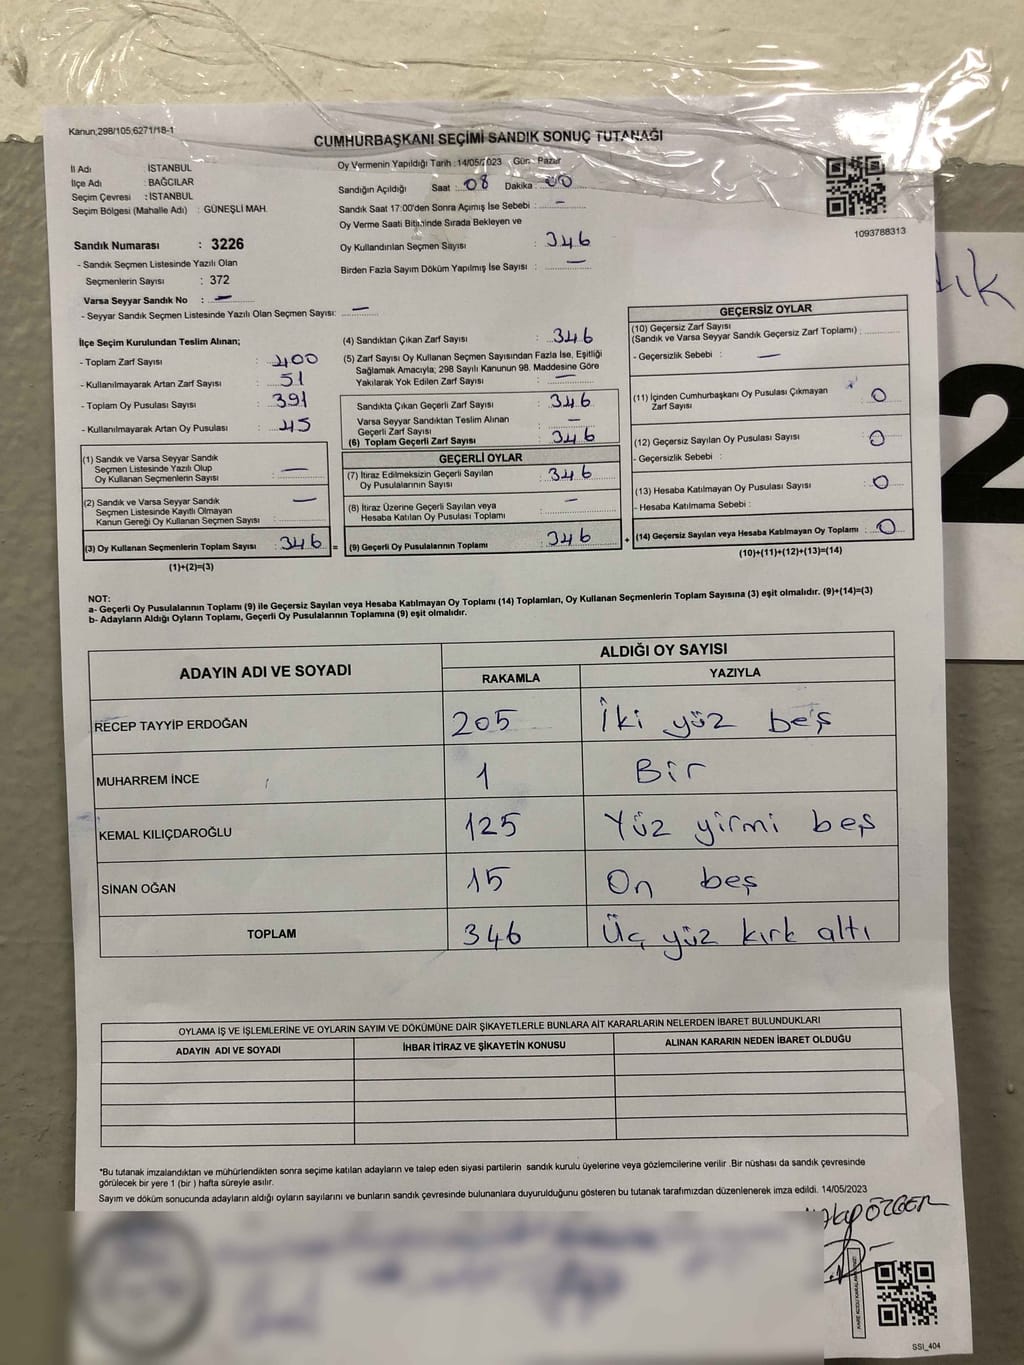 Kanun,298/105,6271/18-1
CUMHURBAŞKANI SEÇİMİ SANDIK SONUÇ TUTANAĞI
İl Adı İSTANBUL
İlçe Adı : BAĞCILAR
Seçim Çevresi : İSTANBUL
Seçim Bölgesi (Mahalle Adı) : GÜNEŞLİ MAH.
Sandık Numarası : 3226
- Sandık Seçmen Listesinde Yazılı Olan
Seçmenlerin Sayısı : 372
Varsa Seyyar Sandık No : —
- Seyyar Sandık Seçmen Listesinde Yazılı Olan Seçmen Sayısı: —
Oy Vermenin Yapıldığı Tarih :14/05/2023 Gün : Pazar
Sandığın Açıldığı Saat : 08 Dakika : 00
Sandık Saat 17:00'den Sonra Açımış İse Sebebi : —
Oy Verme Saati Bitiminde Sırada Bekleyen ve
Oy Kullandırılan Seçmen Sayısı : 346
Birden Fazla Sayım Döküm Yapılmış İse Sayısı : —
1093788313
İlçe Seçim Kurulundan Teslim Alınan;
- Toplam Zarf Sayısı : 400
- Kullanılmayarak Artan Zarf Sayısı : 51
- Toplam Oy Pusulası Sayısı : 391
- Kullanılmayarak Artan Oy Pusulası : 45
(1) Sandık ve Varsa Seyyar Sandık
Seçmen Listesinde Yazılı Olup
Oy Kullanan Seçmenlerin Sayısı : —
(2) Sandık ve Varsa Seyyar Sandık
Seçmen Listesinde Kayıtlı Olmayan
Kanun Gereği Oy Kullanan Seçmen Sayısı : —
(3) Oy Kullanan Seçmenlerin Toplam Sayısı : 346 =
(1)+(2)=(3)
(4) Sandıktan Çıkan Zarf Sayısı : 346
(5) Zarf Sayısı Oy Kullanan Seçmen Sayısından Fazla İse, Eşitliği
Sağlamak Amacıyla; 298 Sayılı Kanunun 98. Maddesine Göre
Yakılarak Yok Edilen Zarf Sayısı : —
Sandıkta Çıkan Geçerli Zarf Sayısı : 346
Varsa Seyyar Sandıktan Teslim Alınan
Geçerli Zarf Sayısı :
(6) Toplam Geçerli Zarf Sayısı : 346
GEÇERLİ OYLAR
(7) İtiraz Edilmeksizin Geçerli Sayılan
Oy Pusulalarının Sayısı : 346
(8) İtiraz Üzerine Geçerli Sayılan veya
Hesaba Katılan Oy Pusulası Toplamı : —
(9) Geçerli Oy Pusulalarının Toplamı : 346 +
GEÇERSİZ OYLAR
(10) Geçersiz Zarf Sayısı
(Sandık ve Varsa Seyyar Sandık Geçersiz Zarf Toplamı) :
- Geçersizlik Sebebi : —
(11) İçinden Cumhurbaşkanı Oy Pusulası Çıkmayan
Zarf Sayısı : 0
(12) Geçersiz Sayılan Oy Pusulası Sayısı : 0
- Geçersizlik Sebebi :
(13) Hesaba Katılmayan Oy Pusulası Sayısı : 0
- Hesaba Katılmama Sebebi :
(14) Geçersiz Sayılan veya Hesaba Katılmayan Oy Toplamı : 0
(10)+(11)+(12)+(13)=(14)
NOT:
a- Geçerli Oy Pusulalarının Toplamı (9) ile Geçersiz Sayılan veya Hesaba Katılmayan Oy Toplamı (14) Toplamları, Oy Kullanan Seçmenlerin Toplam Sayısına (3) eşit olmalıdır. (9)+(14)=(3)
b- Adayların Aldığı Oyların Toplamı, Geçerli Oy Pusulalarının Toplamına (9) eşit olmalıdır.
ADAYIN ADI VE SOYADI ALDIĞI OY SAYISI
RAKAMLA YAZIYLA
RECEP TAYYİP ERDOĞAN 205 İki yüz beş
MUHARREM İNCE 1 Bir
KEMAL KILIÇDAROĞLU 125 Yüz yirmi beş
SİNAN OĞAN 15 On beş
TOPLAM 346 Üç yüz kırk altı
OYLAMA İŞ VE İŞLEMLERİNE VE OYLARIN SAYIM VE DÖKÜMÜNE DAİR ŞİKAYETLERLE BUNLARA AİT KARARLARIN NELERDEN İBARET BULUNDUKLARI
ADAYIN ADI VE SOYADI İHBAR İTİRAZ VE ŞİKAYETİN KONUSU ALINAN KARARIN NEDEN İBARET OLDUĞU
*Bu tutanak imzalandıktan ve mühürlendikten sonra seçime katılan adayların ve talep eden siyasi partilerin sandık kurulu üyelerine veya gözlemcilerine verilir .Bir nüshası da sandık çevresinde
görülecek bir yere 1 (bir ) hafta süreyle asılır.
Sayım ve döküm sonucunda adayların aldığı oyların sayılarını ve bunların sandık çevresinde bulunanlara duyurulduğunu gösteren bu tutanak tarafımızdan düzenlenerek imza edildi. 14/05/2023
ÖZGER
SSİ_404
2